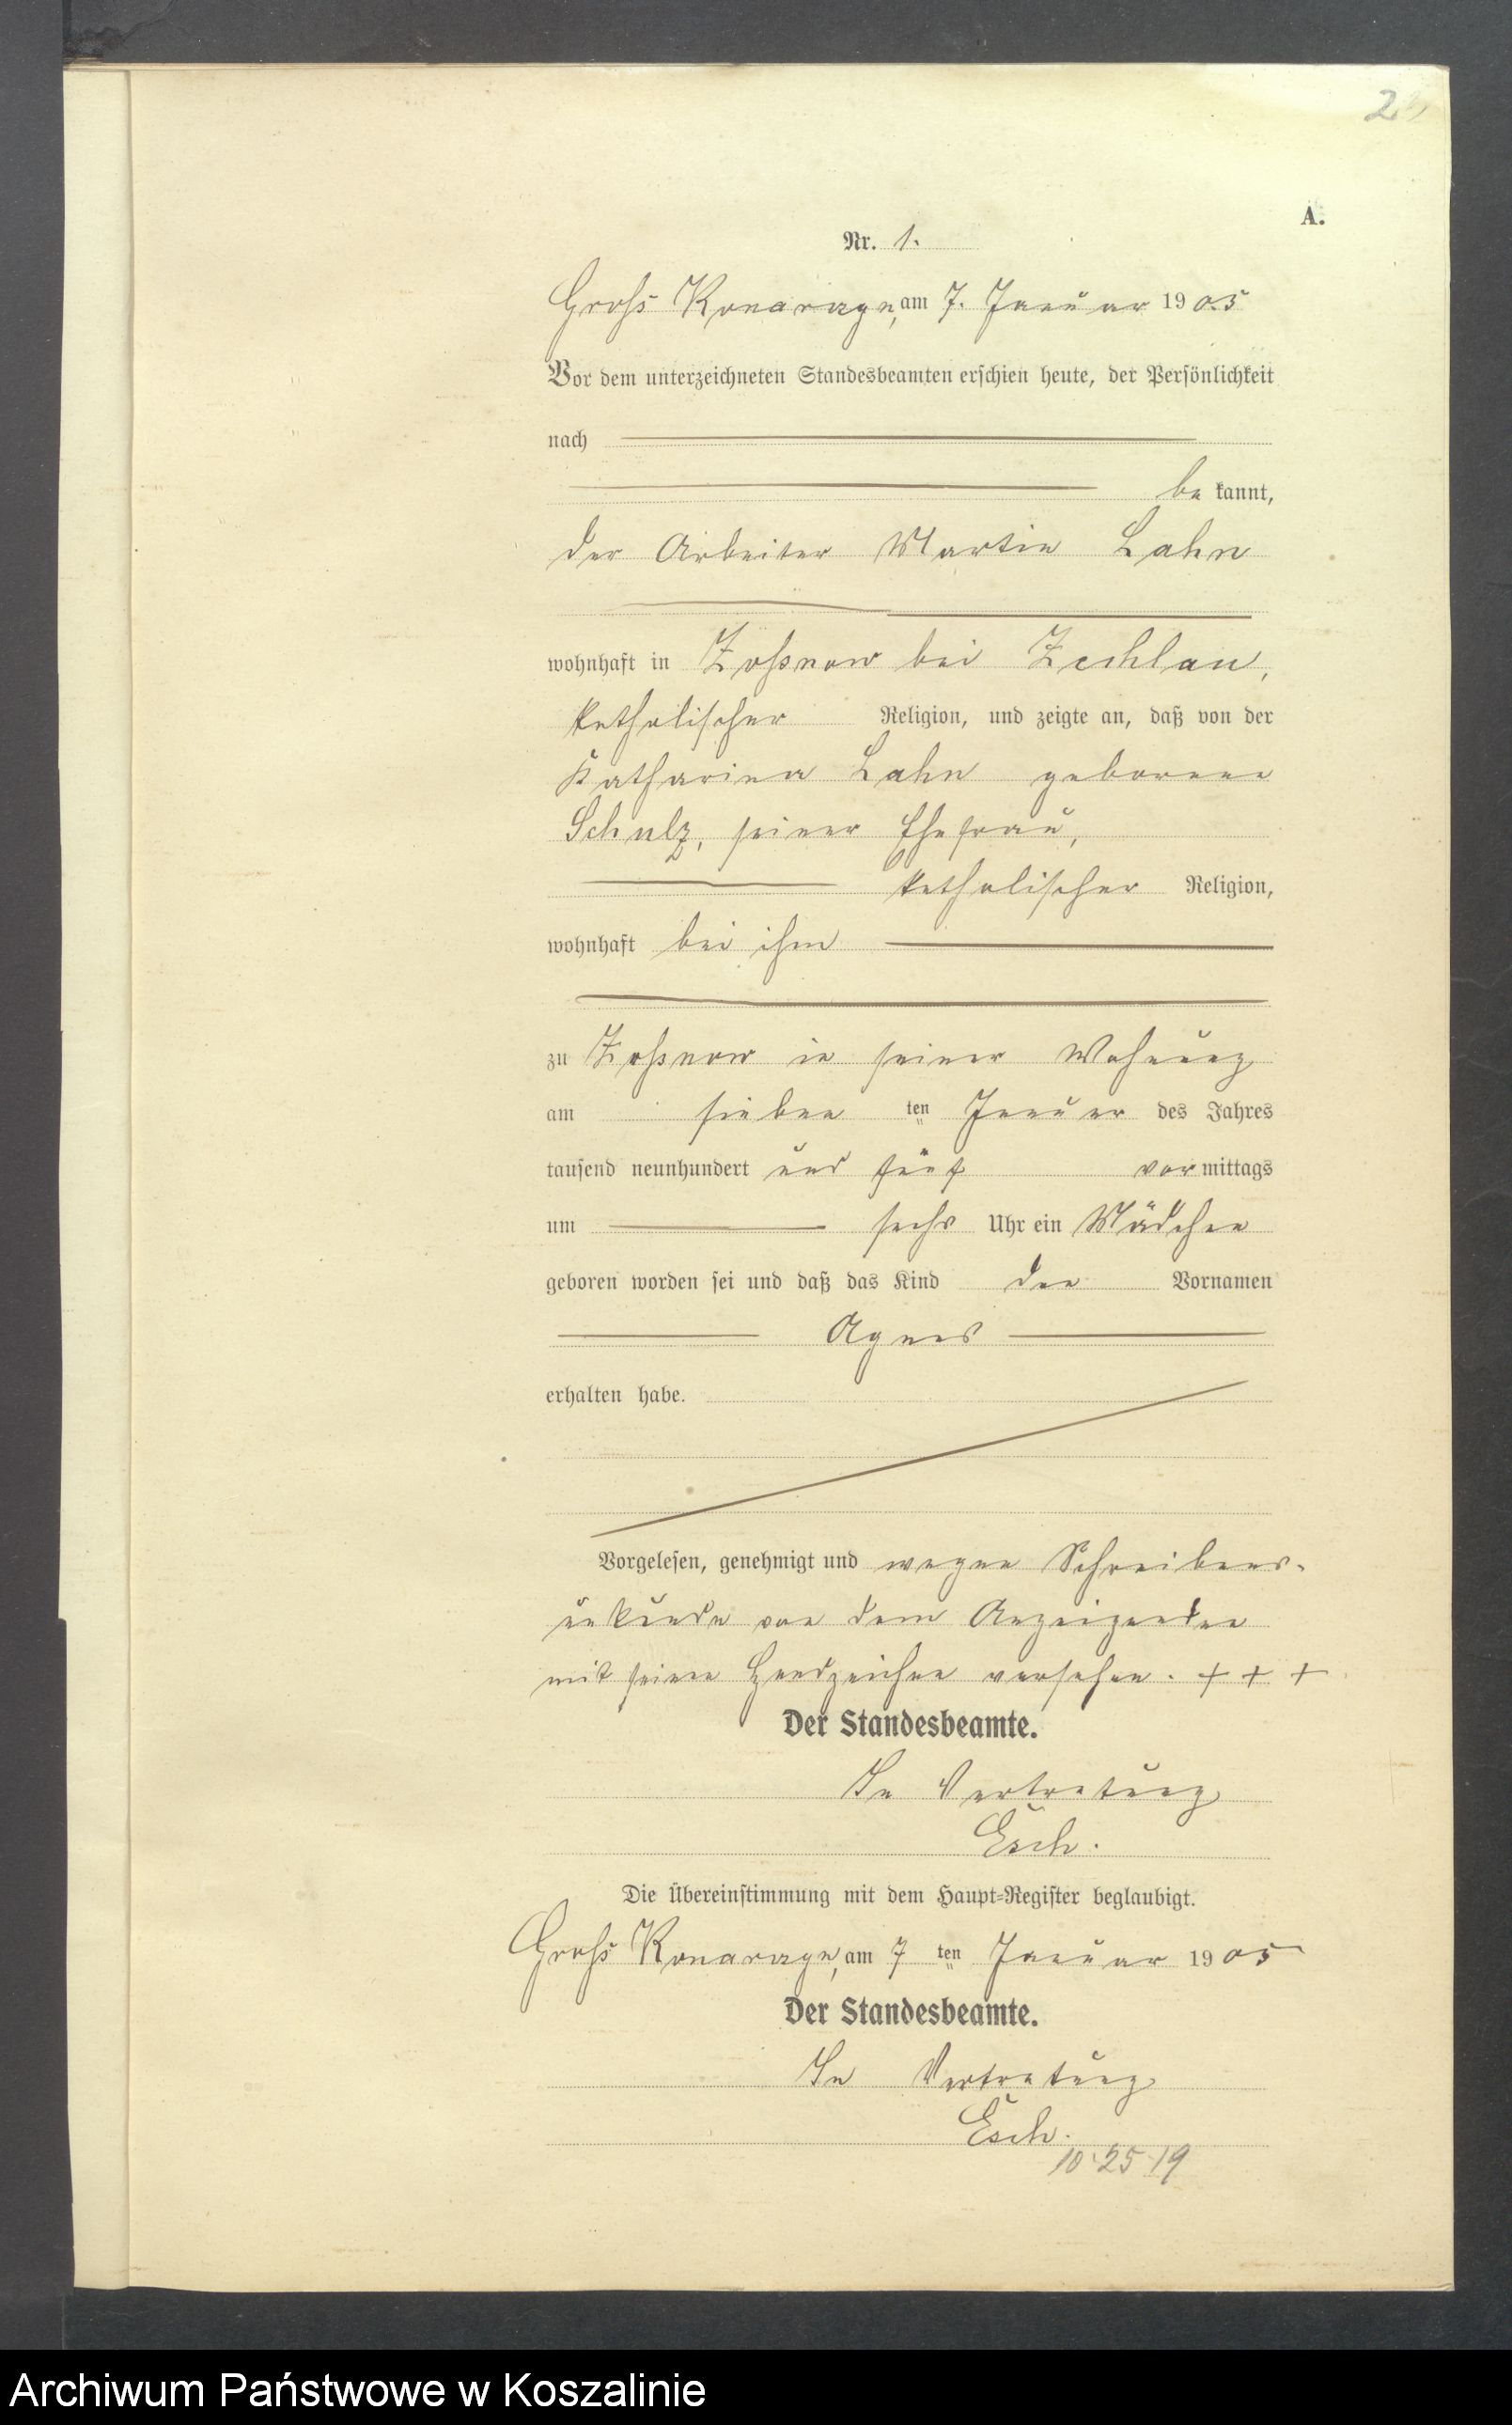 2
A.
Nr. 1.
Gross Konarzyn, am 7. Januar 1905
Vor dem unterzeichneten Standesbeamten erschien heute, der Persönlichkeit
nach
be kannt,
der Arbeiter Martin Lahn
wohnhaft in Zoßnow bei Zechlau,
katholischer Religion, und zeigte an, daß von der
Katharina Lahn geborene
Schulz, seiner Ehefrau,
katholischer Religion,
wohnhaft bei ihm
zu Zoßnow in seiner Wohnung
am sieben ten Januar des Jahres
tausend neunhundert und fünf vormittags
um sechs Uhr ein Mädchen
geboren worden sei und daß das Kind den Vornamen
Agnes
erhalten habe.
Vorgelesen, genehmigt und wegen Schreibens-
unkunde von dem Anzeigenden
mit seinem Handzeichen versehen. + + +
Der Standesbeamte.
In Vertretung
Esch.
Die Übereinstimmung mit dem Haupt-Register beglaubigt.
Gross Konarzyn, am 7 ten Januar 1905
Der Standesbeamte.
In Vertretung
Esch.
10·25·19
Archiwum Państwowe w Koszalinie